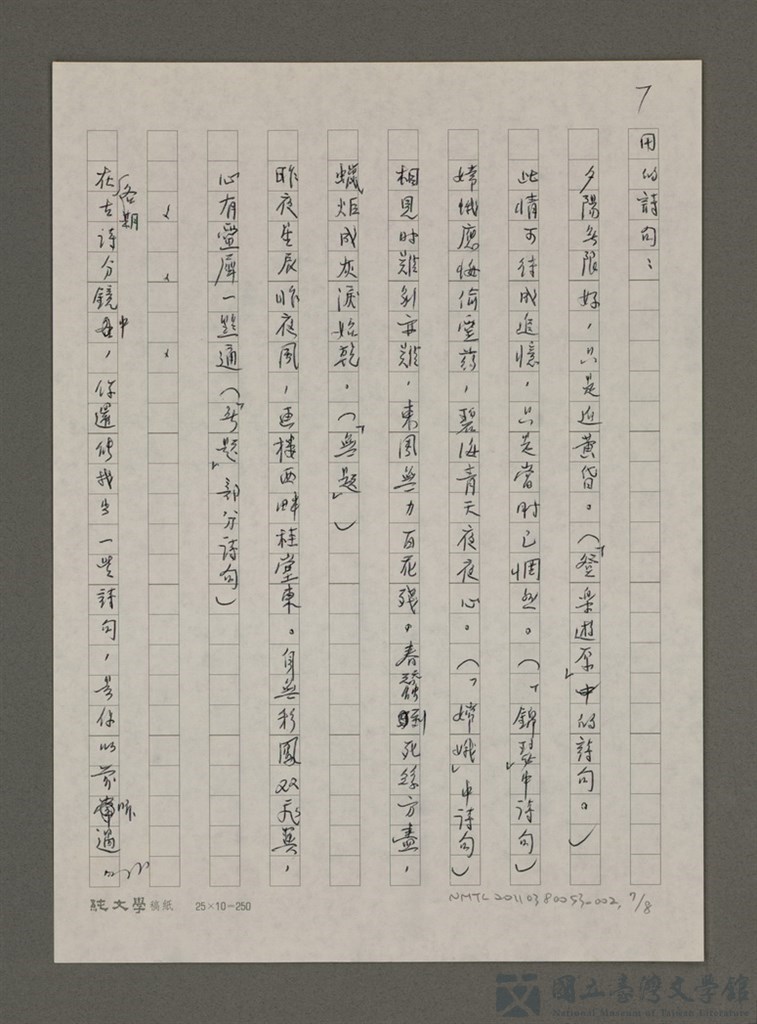 7
用的詩句：
夕陽無限好，只是近黃昏。（「登樂遊原」中的詩句。）
此情可待成追憶，只是當时已惘然。（「錦瑟」中詩句）
嫦娥應悔偷靈药，碧海青天夜夜心。（「嫦娥」中詩句）
相見时難别亦難，東風無力百花殘。春蠶到死絲方盡，
蠟炬成灰淚始乾。（「無題」）
昨夜星辰昨夜風，画楼西畔桂堂東。身無彩鳳双飛翼，
心有靈犀一點通（「無題」部分詩句）
在各期古詩分鏡中，你還能找出一些詩句，是你以前常听過
純文學稿紙 25×10=250
NMTL 20110380053-002, 7/8
國立臺灣文學館
National Museum of Taiwan Literature